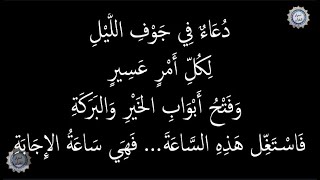 دُعَاءٌ فِي جَوْفِ اللَّيْلِ
لِكُلِّ أَمْرٍ عَسِيرٍ
وَفَتْحُ أَبْوَابِ الخَيْرِ وَالبَرَكَةِ
فَاسْتَغِّل هَذِهِ السَّاعَةَ... فَهِيَ سَاعَةُ الإِجَابَةِ